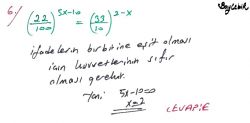 6) (22/100)^(5x-10) = (33/10)^(2-x)
ifadelerin birbirine eşit olması
için kuvvetlerinin sıfır
olması gerekir.
Yani 5x-10=0
x=2
CEVAP:E